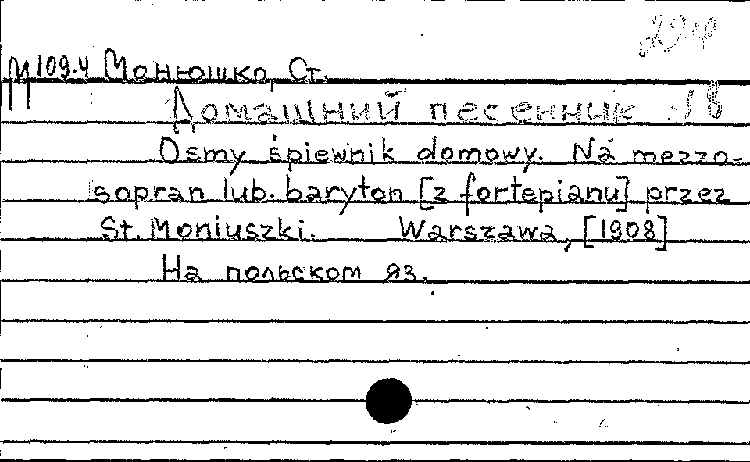 М109.4 Монюшко, Ст.
Домашний песенник. 18
Osmy śpiewnik domowy. Na mezzo-
sopran lub. baryton [z fortepianu] przez
St. Moniuszki. Warszawa, [1908]
На польском яз.